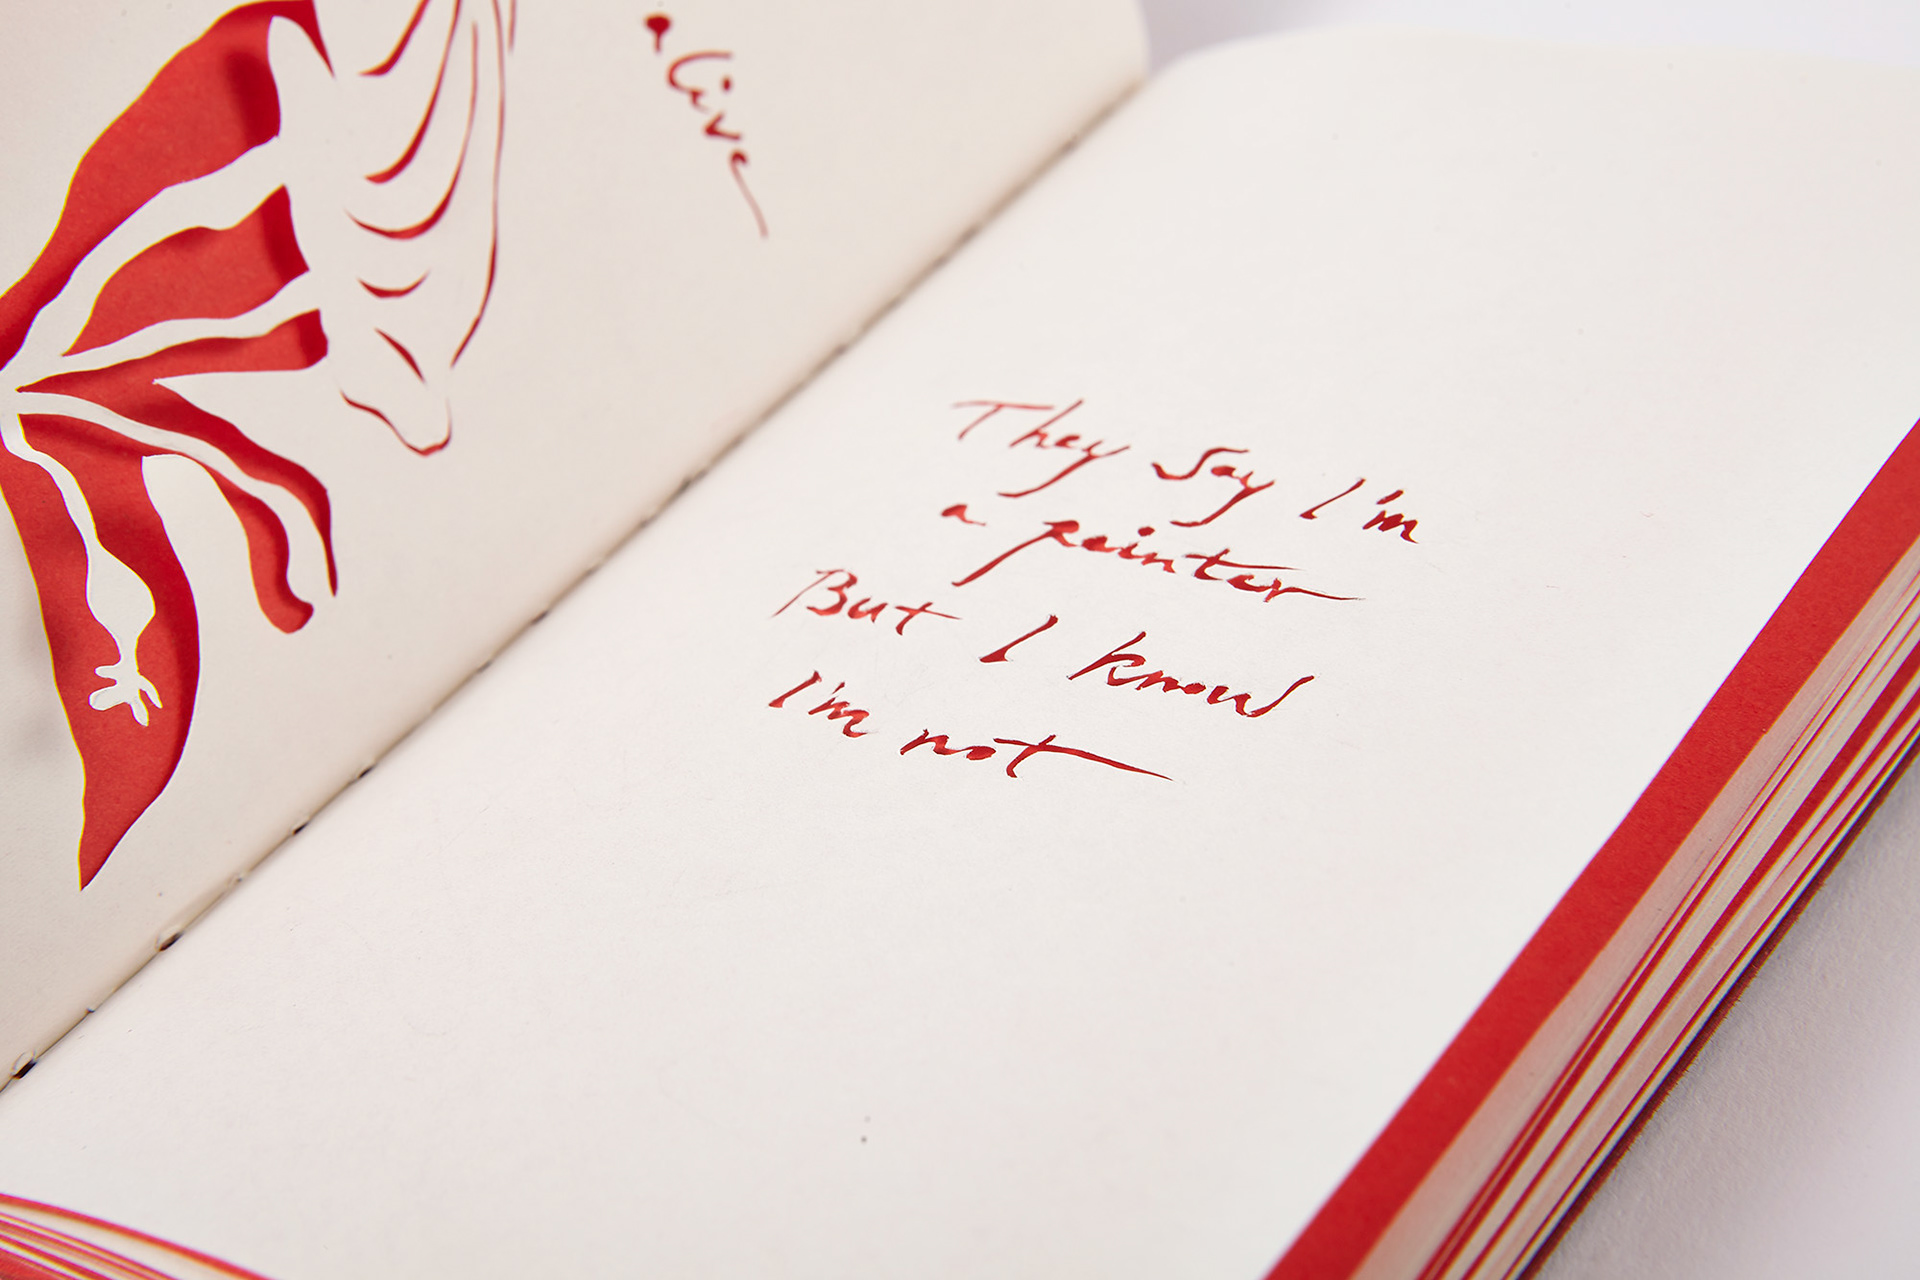 alive
They Say I'm
a painter
But I know
I'm not